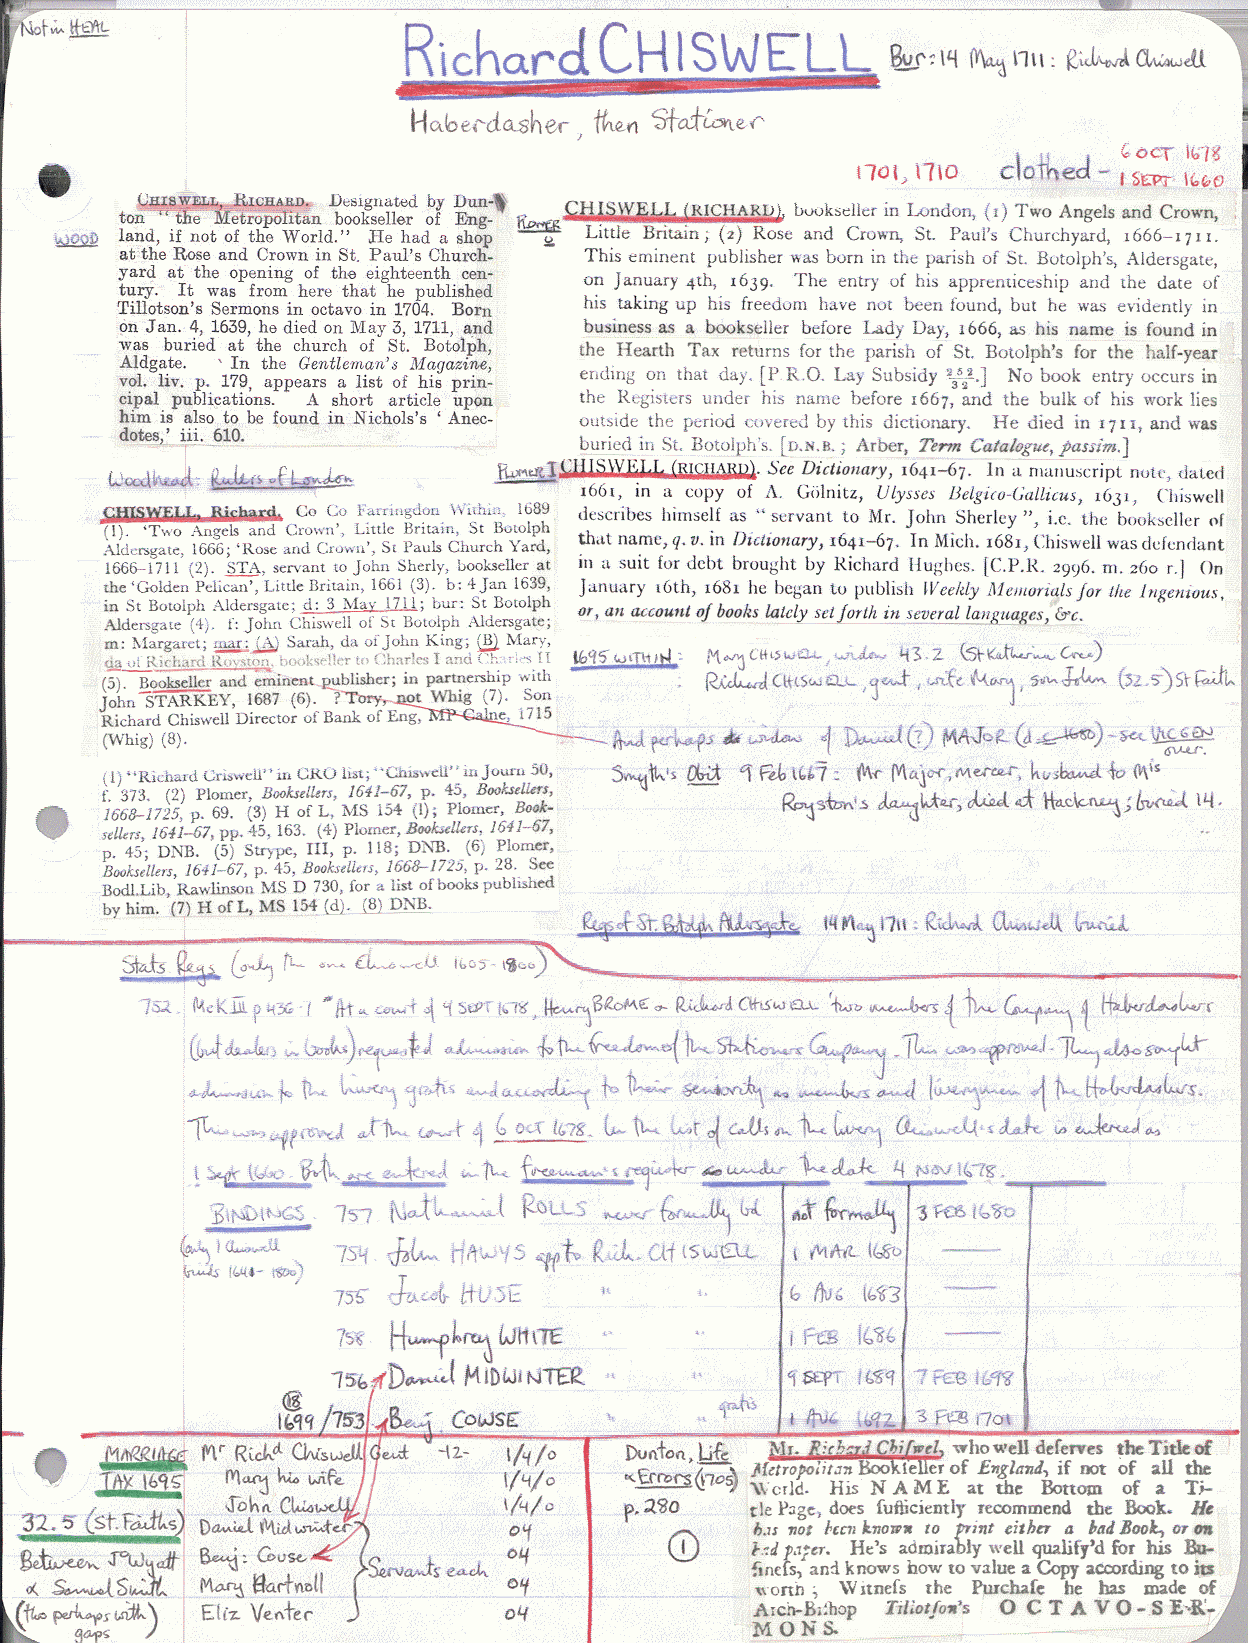 Not in HEAL
Richard CHISWELL
Bur: 14 May 1711: Richard Chiswell
Haberdasher, then Stationer
1701, 1710 clothed - 6 OCT 1678
1 SEPT 1660
WOOD
CHISWELL, RICHARD. Designated by Dun-
ton "the Metropolitan bookseller of Eng-
land, if not of the World." He had a shop
at the Rose and Crown in St. Paul's Church-
yard at the opening of the eighteenth cen-
tury. It was from here that he published
Tillotson's Sermons in octavo in 1704. Born
on Jan. 4, 1639, he died on May 3, 1711, and
was buried at the church of St. Botolph,
Aldgate. In the Gentleman's Magazine,
vol. liv. p. 179, appears a list of his prin-
cipal publications. A short article upon
him is also to be found in Nichols's 'Anec-
dotes,' iii. 610.
PLOMER
0
CHISWELL (RICHARD), bookseller in London, (1) Two Angels and Crown,
Little Britain; (2) Rose and Crown, St. Paul's Churchyard, 1666-1711.
This eminent publisher was born in the parish of St. Botolph's, Aldersgate,
on January 4th, 1639. The entry of his apprenticeship and the date of
his taking up his freedom have not been found, but he was evidently in
business as a bookseller before Lady Day, 1666, as his name is found in
the Hearth Tax returns for the parish of St. Botolph's for the half-year
ending on that day. [P.R.O. Lay Subsidy 252/32.] No book entry occurs in
the Registers under his name before 1667, and the bulk of his work lies
outside the period covered by this dictionary. He died in 1711, and was
buried in St. Botolph's. [D.N.B.; Arber, Term Catalogue, passim.]
PLOMER I
CHISWELL (RICHARD). See Dictionary, 1641-67. In a manuscript note, dated
1661, in a copy of A. Gölnitz, Ulysses Belgico-Gallicus, 1631, Chiswell
describes himself as "servant to Mr. John Sherley", i.e. the bookseller of
that name, q.v. in Dictionary, 1641-67. In Mich. 1681, Chiswell was defendant
in a suit for debt brought by Richard Hughes. [C.P.R. 2996. m. 260 r.] On
January 16th, 1681 he began to publish Weekly Memorials for the Ingenious,
or, an account of books lately set forth in several languages, &c.
Woodhead: Rulers of London
CHISWELL, Richard. Co Co Farringdon Within, 1689
(1). 'Two Angels and Crown', Little Britain, St Botolph
Aldersgate, 1666; 'Rose and Crown', St Pauls Church Yard,
1666-1711 (2). STA, servant to John Sherly, bookseller at
the 'Golden Pelican', Little Britain, 1661 (3). b: 4 Jan 1639,
in St Botolph Aldersgate; d: 3 May 1711; bur: St Botolph
Aldersgate (4). f: John Chiswell of St Botolph Aldersgate;
m: Margaret; mar: (A) Sarah, da of John King; (B) Mary,
da of Richard Royston, bookseller to Charles I and Charles II
(5). Bookseller and eminent publisher; in partnership with
John STARKEY, 1687 (6). ? Tory, not Whig (7). Son
Richard Chiswell Director of Bank of Eng, MP Calne, 1715
(Whig) (8).
(1) "Richard Criswell" in CRO list; "Chiswell" in Journ 50,
f. 373. (2) Plomer, Booksellers, 1641-67, p. 45, Booksellers,
1668-1725, p. 69. (3) H of L, MS 154 (1); Plomer, Book-
sellers, 1641-67, pp. 45, 163. (4) Plomer, Booksellers, 1641-67,
p. 45; DNB. (5) Strype, III, p. 118; DNB. (6) Plomer,
Booksellers, 1641-67, p. 45, Booksellers, 1668-1725, p. 28. See
Bodl.Lib, Rawlinson MS D 730, for a list of books published
by him. (7) H of L, MS 154 (d). (8) DNB.
1695 WITHIN: Mary CHISWELL, widow 43.2 (St Katherine Cree)
: Richard CHISWELL, gent, wife Mary, son John (32.5) St Faith
And perhaps widow of Daniel (?) MAJOR (d c 1680) - see VIC GEN
over.
Smyth's Obit 9 Feb 1667: Mr Major, mercer, husband to Mis
Royston's daughter, died at Hackney; buried 14.
Regs of St. Botolph Aldersgate 14 May 1711: Richard Chiswell buried
Stats Regs (only the one Chiswell 1605-1800)
752. McK III p 436-1 "At a court of 9 SEPT 1678, Henry BROME & Richard CHISWELL 'two members of the Company of Haberdashers
(but dealers in books) requested admission to the freedom of the Stationers Company. This was approved. They also sought
admission to the livery gratis and according to their seniority as members and liverymen of the Haberdashers.
This was approved at the court of 6 OCT 1678. In the list of calls on the livery Chiswell's date is entered as
1 Sept 1660. Both are entered in the freeman's register under the date 4 NOV 1678.
BINDINGS. 757 Nathaniel ROLLS never formally bd not formally 3 FEB 1680
(only 1 Chiswell
binds 1641-1800)
754. John HAWYS app to Rich. CHISWELL 1 MAR 1680 ——
755 Jacob HUSE " " 6 AUG 1683 ——
758 Humphrey WHITE " " 1 FEB 1686 ——
756 Daniel MIDWINTER " " 9 SEPT 1689 7 FEB 1698
18
1699/753 Benj. COWSE " " gratis 1 AUG 1692 3 FEB 1701
MARRIAGE
TAX 1695
32.5 (St. Faiths)
Between Jo Wyatt
& Samuel Smith
(two perhaps with)
gaps
Mr Richd Chiswell Gent -12- 1/4/0
Mary his wife 1/4/0
John Chiswell 1/4/0
Daniel Midwinter 04
Benj: Couse 04
Mary Hartnoll 04
Eliz Venter 04
Servants each
Dunton, Life
& Errors (1705)
p. 280
1
Mr. Richard Chiswel, who well deserves the Title of
Metropolitan Bookseller of England, if not of all the
World. His NAME at the Bottom of a Ti-
tle Page, does sufficiently recommend the Book. He
has not been known to print either a bad Book, or on
bad paper. He's admirably well qualify'd for his Bu-
siness, and knows how to value a Copy according to its
worth; Witness the Purchase he has made of
Arch-Bishop Tillotson's OCTAVO-SER-
MONS.